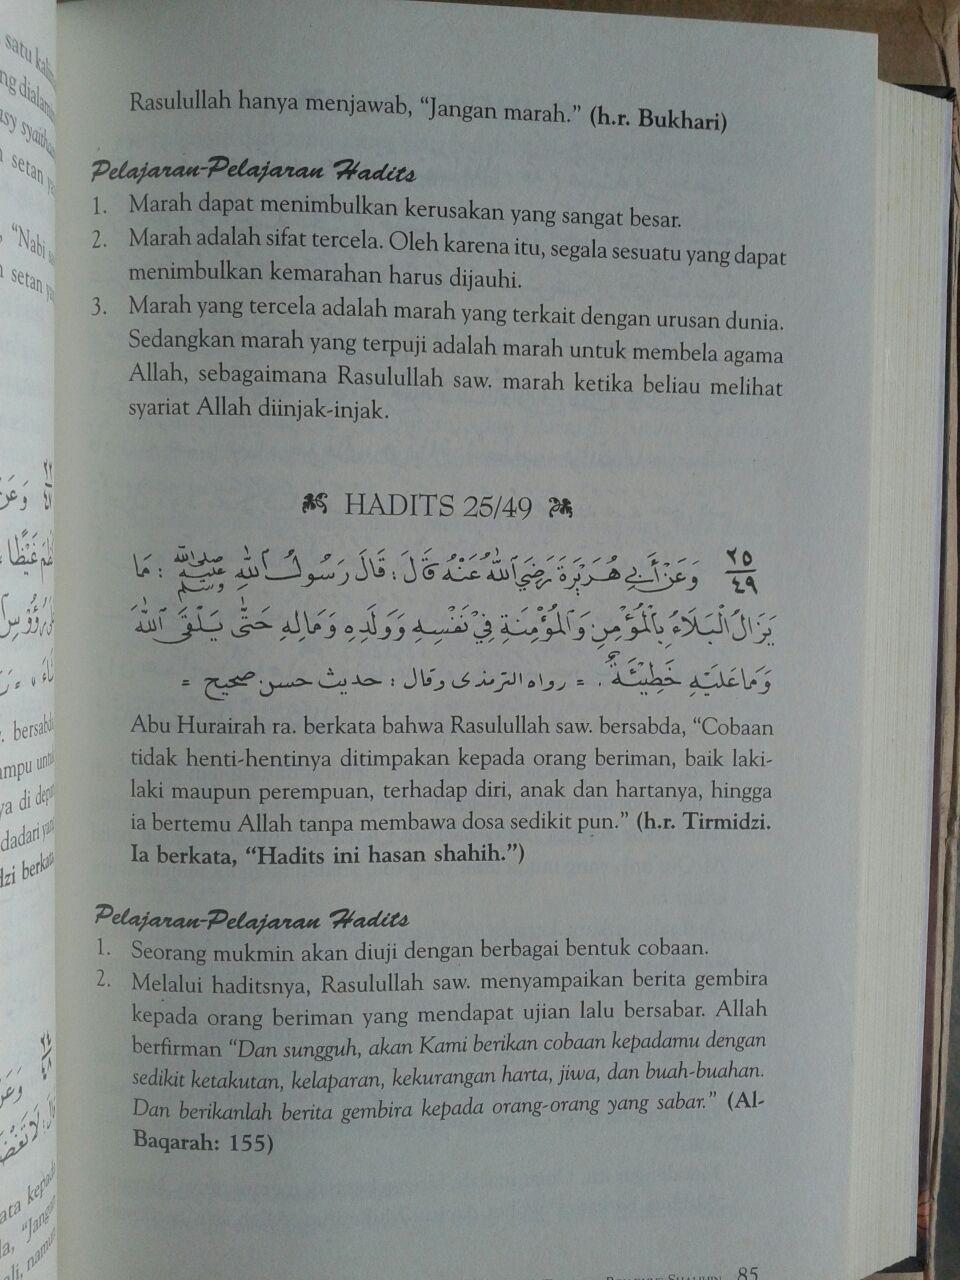 Rasulullah hanya menjawab, “Jangan marah.” (h.r. Bukhari)
Pelajaran-Pelajaran Hadits
1. Marah dapat menimbulkan kerusakan yang sangat besar.
2. Marah adalah sifat tercela. Oleh karena itu, segala sesuatu yang dapat
menimbulkan kemarahan harus dijauhi.
3. Marah yang tercela adalah marah yang terkait dengan urusan dunia.
Sedangkan marah yang terpuji adalah marah untuk membela agama
Allah, sebagaimana Rasulullah saw. marah ketika beliau melihat
syariat Allah diinjak-injak.
HADITS 25/49
٢٥/٤٩ وَعَنْ أَبِي هُرَيْرَةَ رَضِيَ اللهُ عَنْهُ قَالَ : قَالَ رَسُولُ اللهِ صلى الله عليه وسلم : مَا
يَزَالُ الْبَلَاءُ بِالْمُؤْمِنِ وَالْمُؤْمِنَةِ فِيْ نَفْسِهِ وَوَلَدِهِ وَمَالِهِ حَتَّى يَلْقَى اللهَ
وَمَا عَلَيْهِ خَطِيْئَةٌ . = رواه الترمذى وقال : حديث حسن صحيح =
Abu Hurairah ra. berkata bahwa Rasulullah saw. bersabda, “Cobaan
tidak henti-hentinya ditimpakan kepada orang beriman, baik laki-
laki maupun perempuan, terhadap diri, anak dan hartanya, hingga
ia bertemu Allah tanpa membawa dosa sedikit pun.” (h.r. Tirmidzi.
Ia berkata, “Hadits ini hasan shahih.”)
Pelajaran-Pelajaran Hadits
1. Seorang mukmin akan diuji dengan berbagai bentuk cobaan.
2. Melalui haditsnya, Rasulullah saw. menyampaikan berita gembira
kepada orang beriman yang mendapat ujian lalu bersabar. Allah
berfirman “Dan sungguh, akan Kami berikan cobaan kepadamu dengan
sedikit ketakutan, kelaparan, kekurangan harta, jiwa, dan buah-buahan.
Dan berikanlah berita gembira kepada orang-orang yang sabar.” (Al-
Baqarah: 155)
85